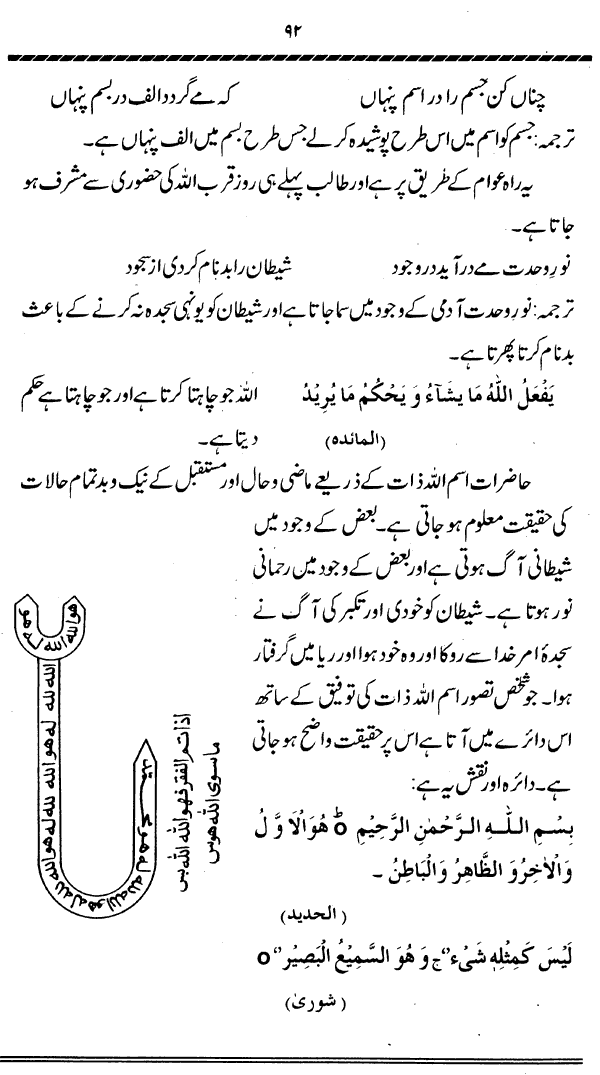 ۹۲
چناں کن جسم را در اسم پنہاں کہ مے گردد الف در بسم پنہاں
ترجمہ: جسم کو اسم میں اس طرح پوشیدہ کر لے جس طرح بسم میں الف پنہاں ہے۔
یہ راہ عوام کے طریق پر ہے اور طالب پہلے ہی روز قرب اللہ کی حضوری سے مشرف ہو
جاتا ہے۔
نورِ وحدت مے در آید در وجود شیطان را بدنام کردی از سجود
ترجمہ: نورِ وحدت آدمی کے وجود میں سما جاتا ہے اور شیطان کو یونہی سجدہ نہ کرنے کے باعث
بدنام کرتا پھرتا ہے۔
يَفْعَلُ اللّٰهُ مَا يَشَآءُ وَ يَحْكُمُ مَا يُرِيْدُ اللہ جو چاہتا کرتا ہے اور جو چاہتا ہے حکم
(المائدہ) دیتا ہے۔
حاضرات اسم اللہ ذات کے ذریعے ماضی و حال اور مستقبل کے نیک و بد تمام حالات
کی حقیقت معلوم ہو جاتی ہے۔ بعض کے وجود میں
شیطانی آگ ہوتی ہے اور بعض کے وجود میں رحمانی
نور ہوتا ہے۔ شیطان کو خودی اور تکبر کی آگ نے
سجدۂ امر خدا سے روکا اور وہ خود ہوا اور ریا میں گرفتار
ہوا۔ جو شخص تصور اسم اللہ ذات کی توفیق کے ساتھ
اس دائرے میں آتا ہے اس پر حقیقت واضح ہو جاتی
ہے۔ دائرہ اور نقش یہ ہے:
بِسْمِ اللّٰهِ الرَّحْمٰنِ الرَّحِيْمِ ۝ؕ هُوَ الْاَ وَّ لُ
وَالْاٰخِرُ وَ الظَّاهِرُ وَ الْبَاطِنُ ۔
(الحدید)
لَيْسَ كَمِثْلِهٖ شَىْء''ج وَ هُوَ السَّمِيْعُ الْبَصِيْر''۝
(شوریٰ)
اذا تم الفقر فهو الله الله بس
ماسوى الله هوس
هو الله الله له هو
الله لله له هو الله لله له هو الله لله له هو الله لله له هو